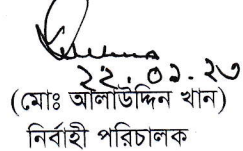 ২২.০১.২৩
(মোঃ আলাউদ্দিন খান)
নির্বাহী পরিচালক